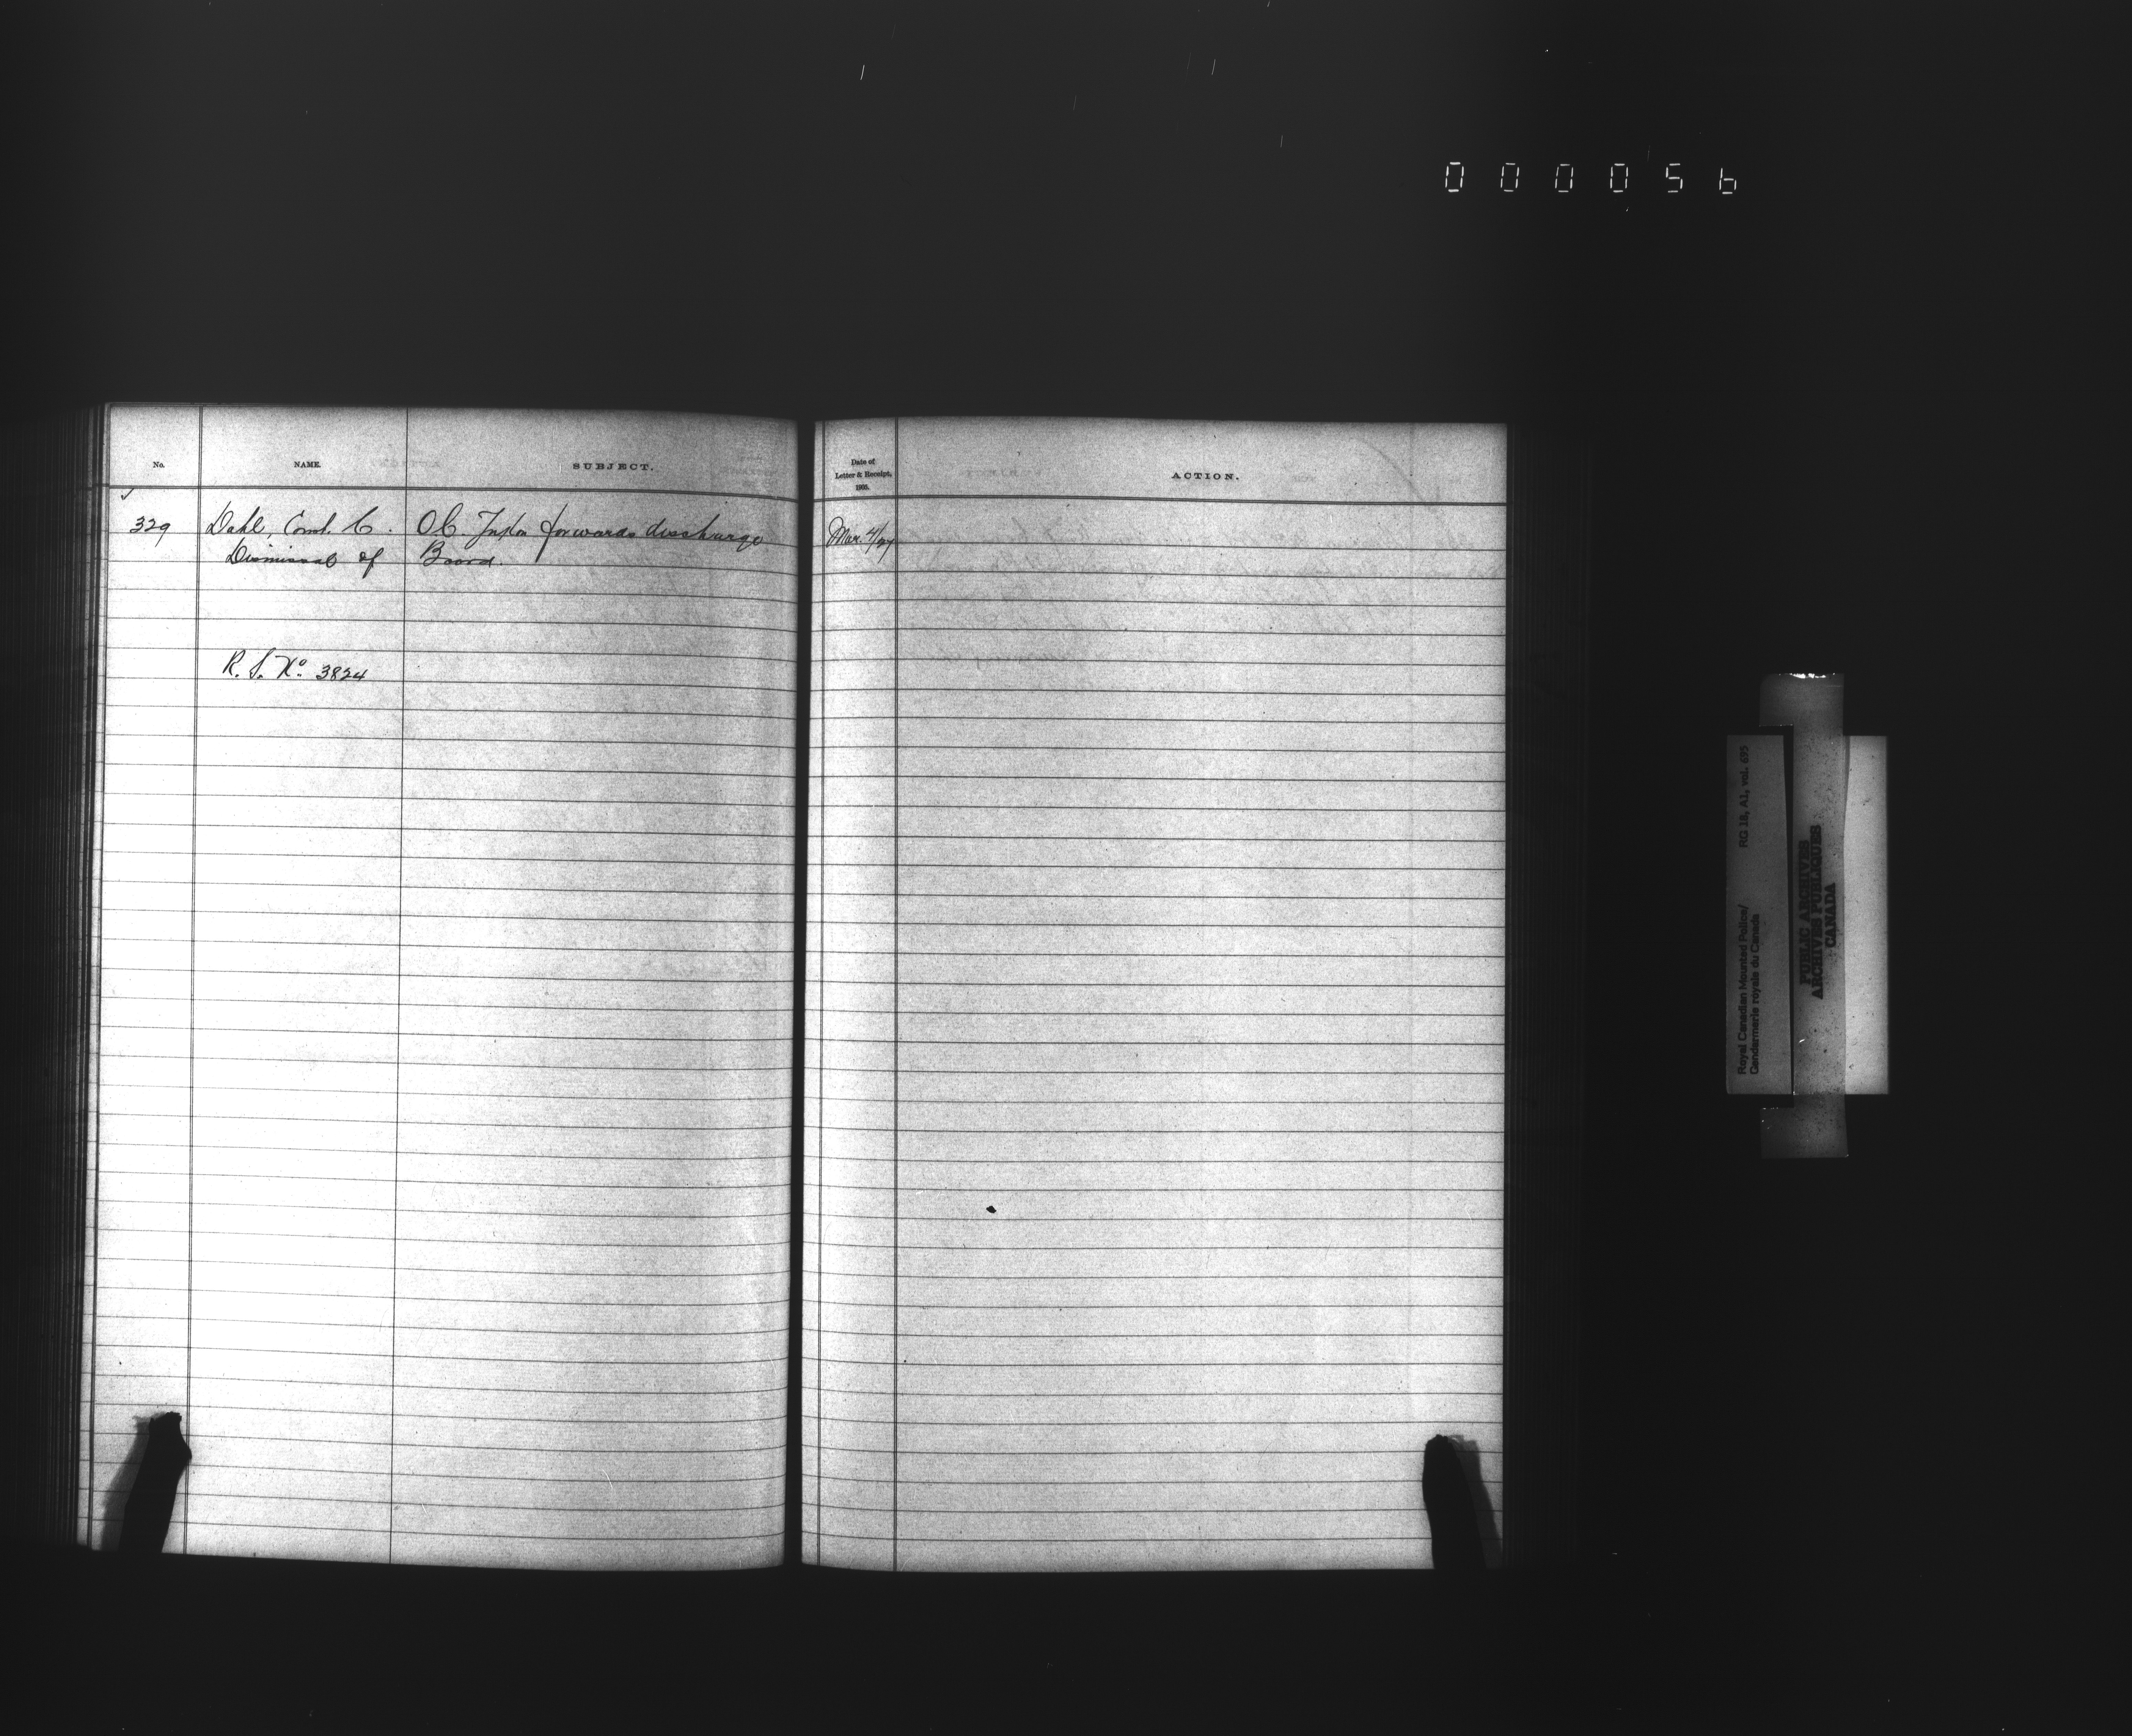 000056
No.
NAME.
SUBJECT.
Date of
Letter & Receipt,
1905.
ACTION.
329
Dahl, Const. C.
O.C. forwards discharge
Mar. 4/27
Dismissal of
Board.
R. S. No. 3824
Royal Canadian Mounted Police/
Gendarmerie royale du Canada
RG 18, A1, vol. 695
PUBLIC ARCHIVES
ARCHIVES PUBLIQUES
CANADA